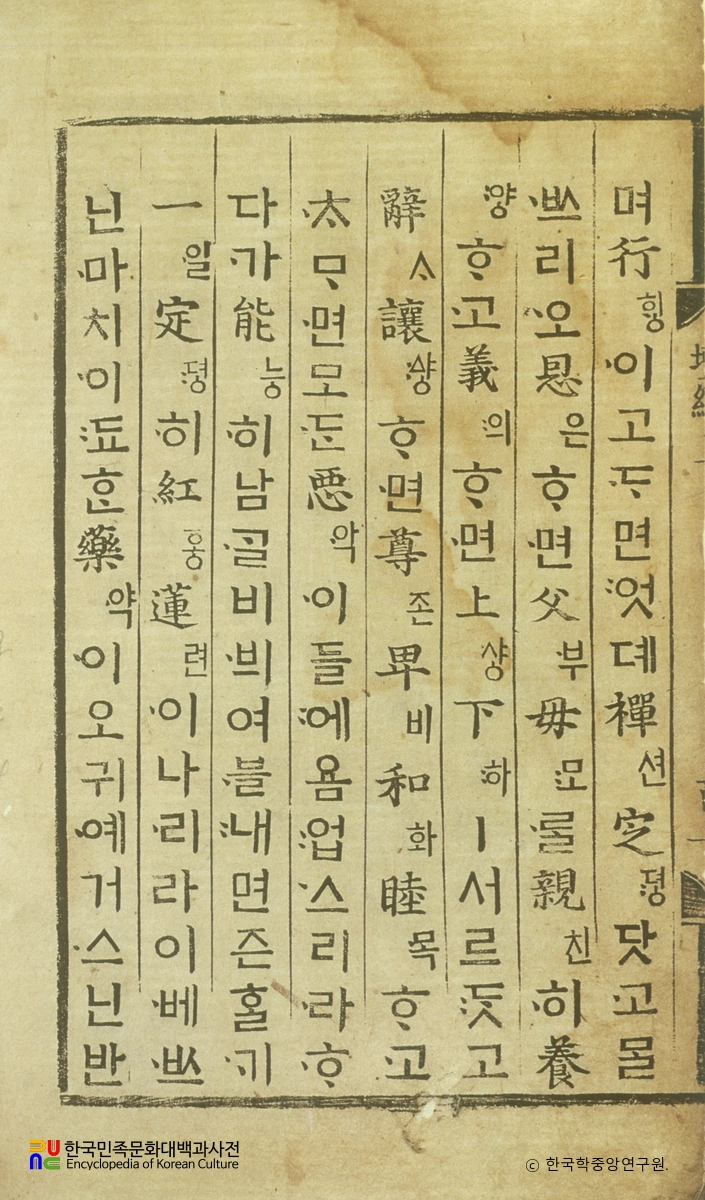 며行ᄒᆡᇰ이고ᄃᆞ면엇뎨禪션定뎡닷고ᄆᆞᆯ
ᄡᅳ리오恩은ᄒᆞ면父부母모ᄅᆞᆯ親친히養
양ᄒᆞ고義의ᄒᆞ면上샹下하ㅣ서르ᄃᆞᆺ고
辭ᄉᆞ讓샹ᄒᆞ면尊존卑비和화睦목ᄒᆞ고
ᄎᆞᄆᆞ면모ᄃᆞᆫ惡악이들에욤업스리라ᄒᆞ
다가能능히남골비븨여블내면즌홀기
一일定뎡히紅홍蓮련이나리라이베ᄡᅳ
닌마치이됴ᄒᆞᆫ藥약이오귀예거스닌반
한국민족문화대백과사전
Encyclopedia of Korean Culture
© 한국학중앙연구원.